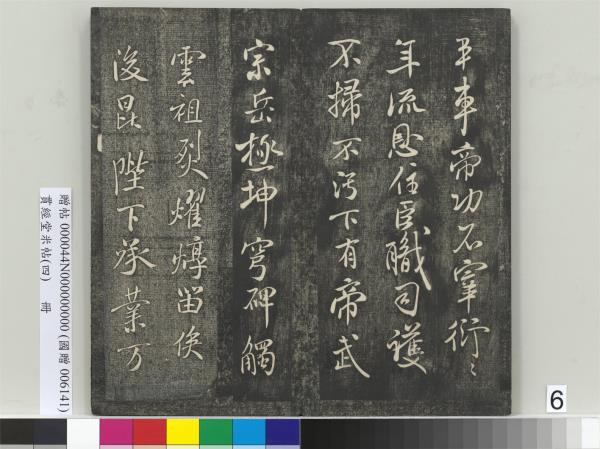 平車帝功不宰衍〻
年流恩任臣職司護
不掃不污下有帝武
宗岳極坤穹碑觸
雲祖烈燿焞留俟
後昆陛下承業万
贈帖 000044N000000000 (國贈 006141)
貫經堂米帖(四) 冊
6